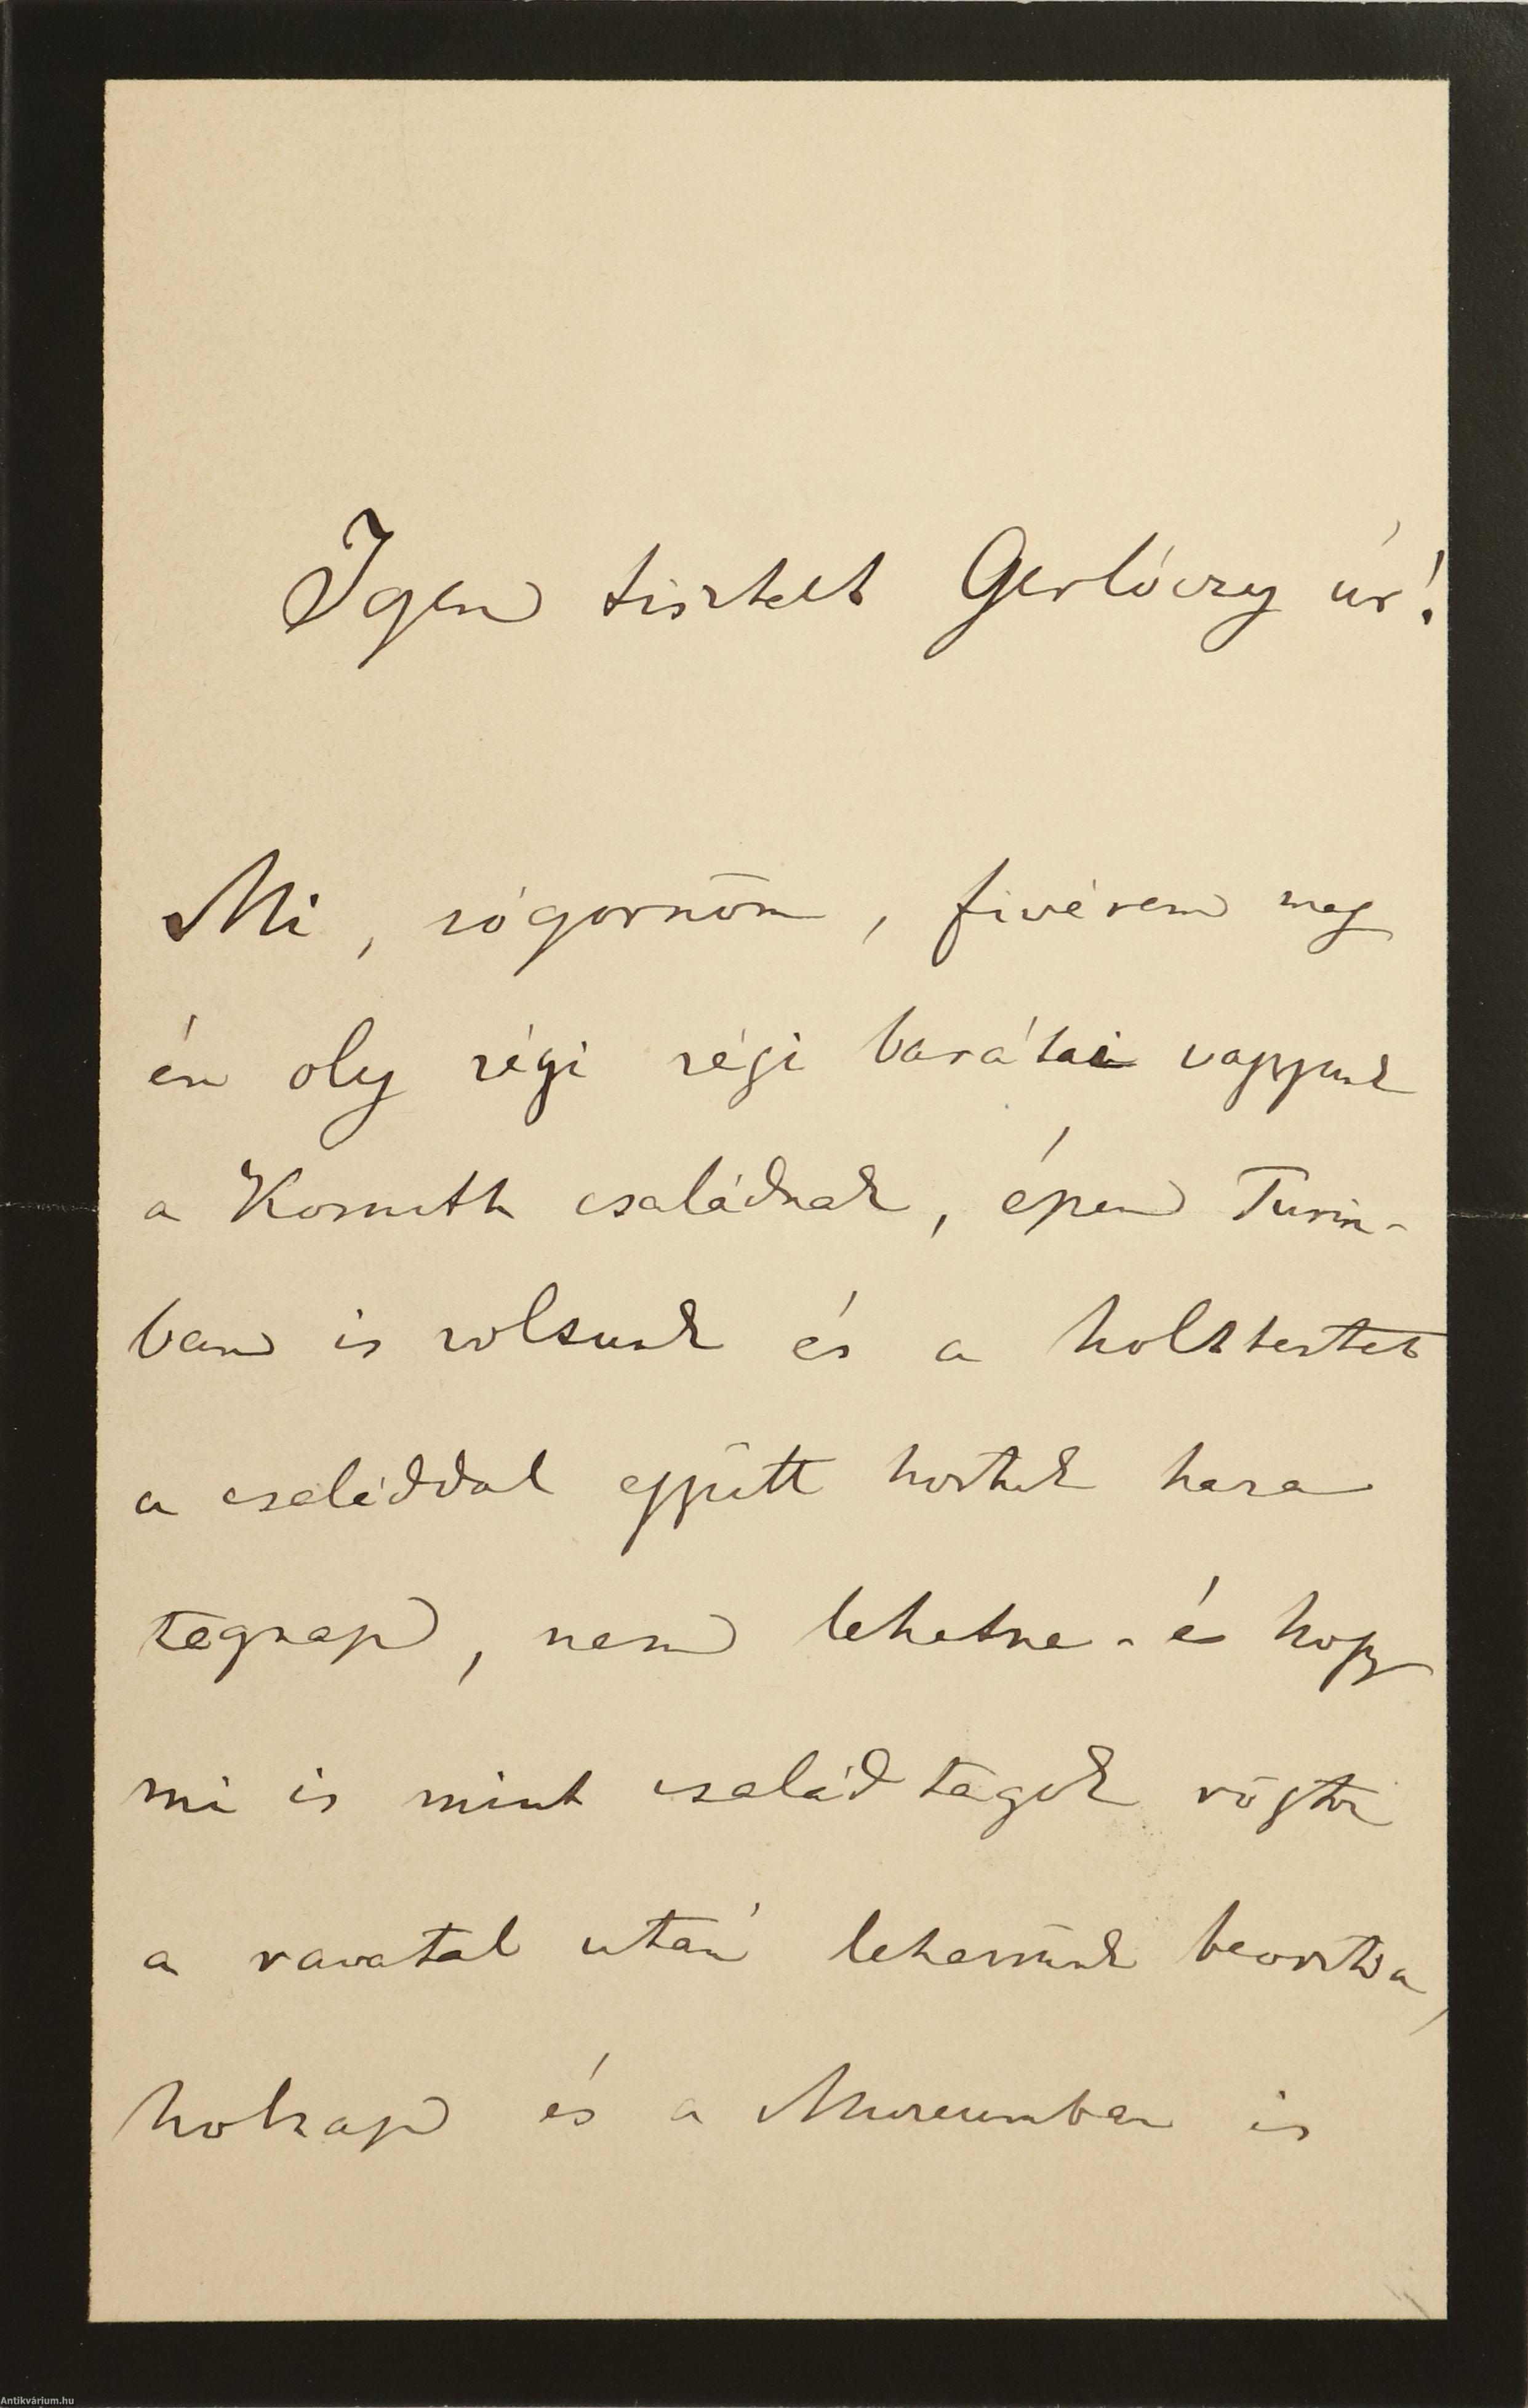 Igen tisztelt Gerlóczy úr!
Mi, sógornőm, fivérem meg
én oly régi régi barátai vagyunk
a Kossuth családnak, épen Turin-
ban is voltunk és a holttestet
a családdal együtt hoztuk haza
tegnap, nem lehetne-é hogy
mi is mint család tagok rögtön
a ravatal után lehessünk beosztva,
holnap és a Muzeumban is
Antikvárium.hu